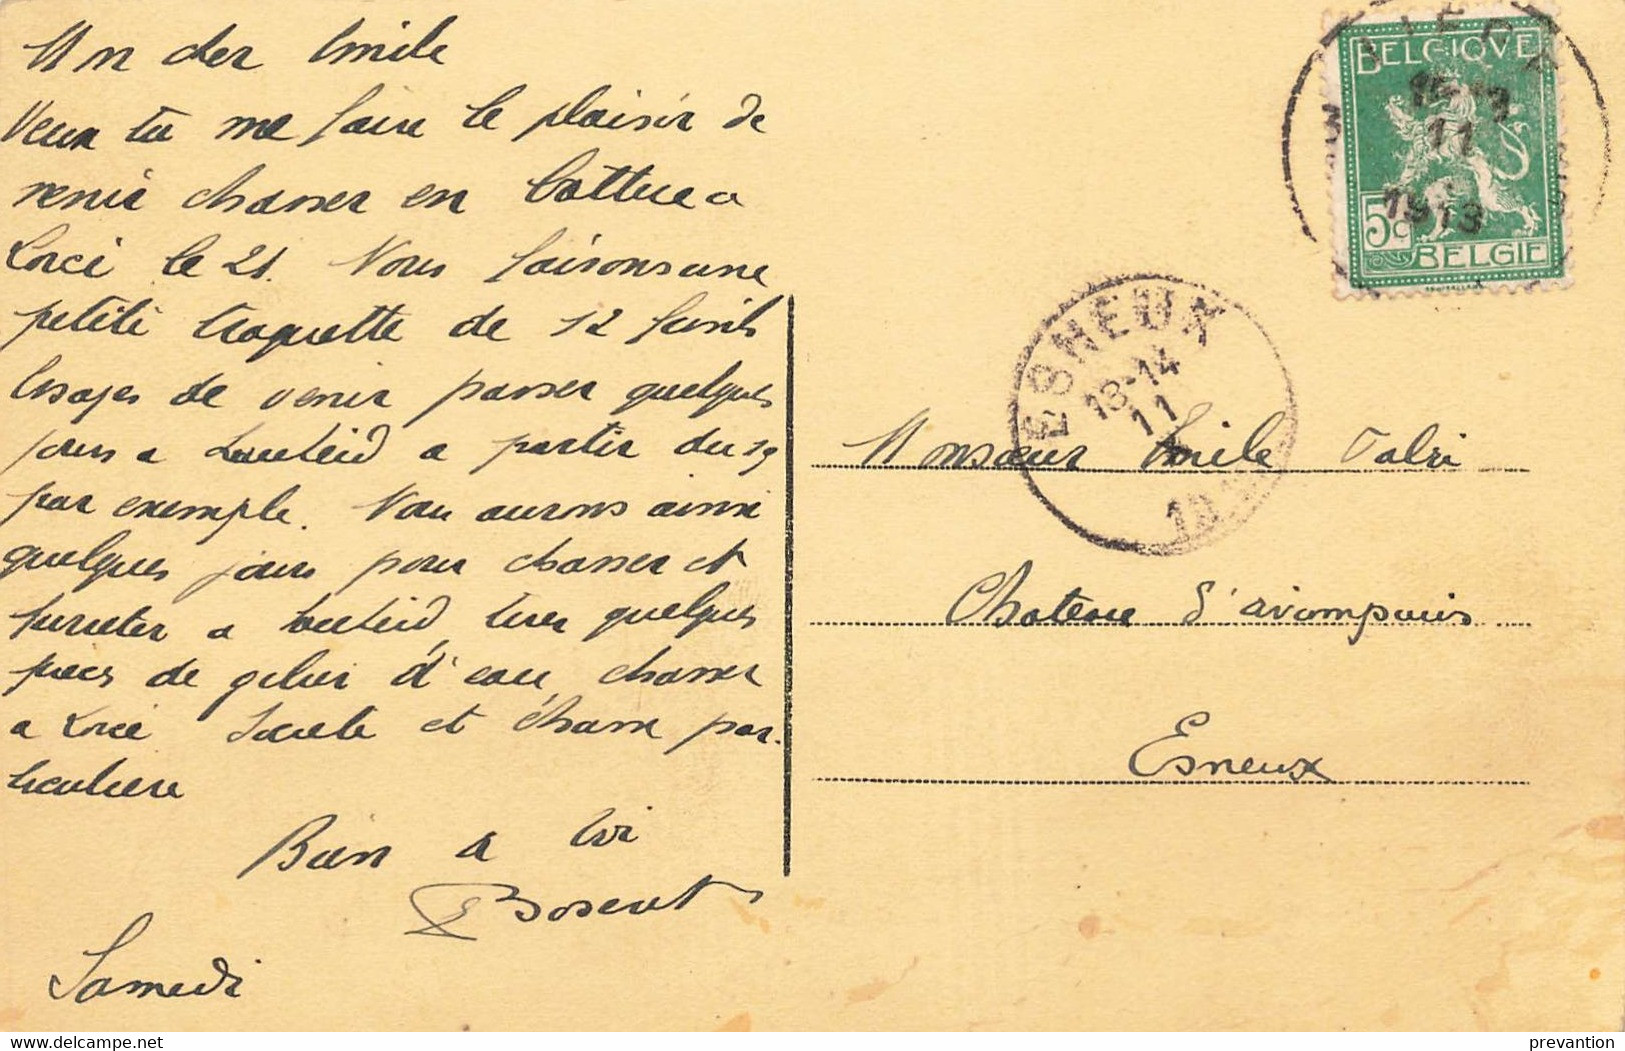 Mon cher Emile
Veux tu me faire le plaisir de
venir chasser en battue a
Lorcé le 21. Nous faisons une
petite traquette de 12 fusils
Essayes de venir passer quelques
jours a Lauteid a partir du 19
par exemple. Nous aurons ainsi
quelques jours pour chasser et
fureter a Lauteid, tirer quelques
pieces de gibier d'eau, chasser
a Lorcé Societe et chasse par-
ticuliere
Bien a toi
Samedi
BELGIQUE
5c
BELGIE
LIEGE
11
1913
ESNEUX
13-14
11
Monsieur Emile
Chateau d'avionpuis
Esneux
prevantion